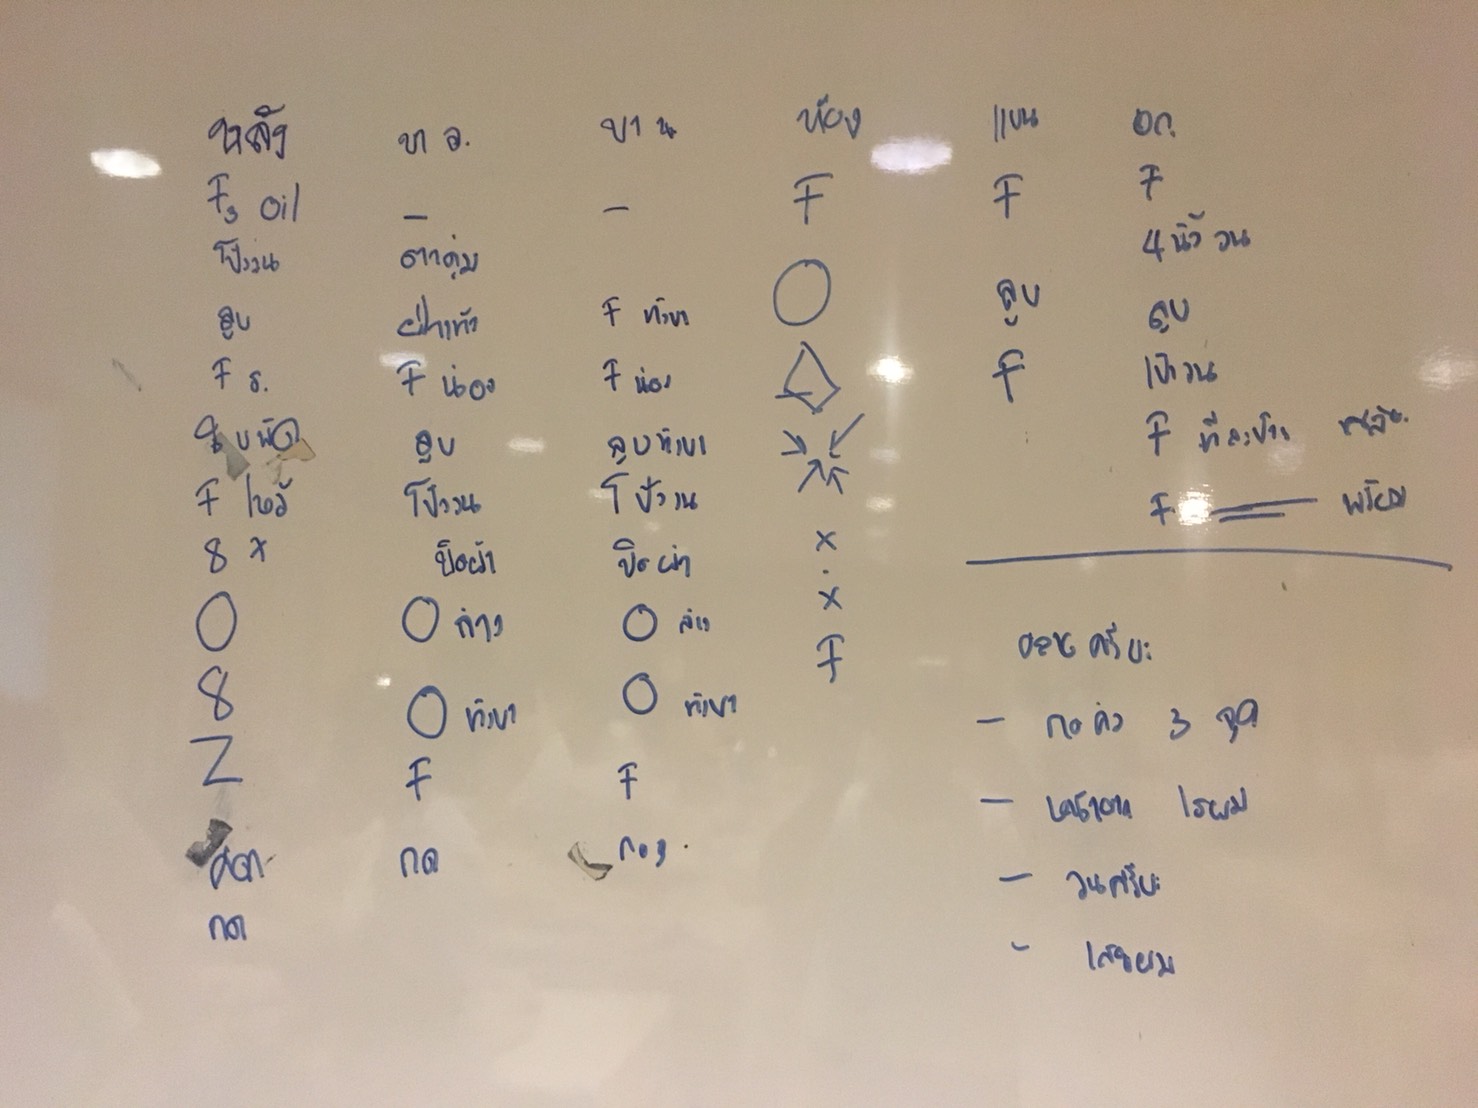 หลัง ขา ล. ขา น ท้อง แขน อก.
F3 oil – – F F F
โป้งวน ตาตุ่ม 4 นิ้ว วน
ลูบ ฝ่าเท้า F ทั้งขา O ลูบ ลูบ
F ร. F น่อง F น่อง F เป้าวน
ลูบ ลูบทั้งขา F ทีละข้าง
F ไหล่ โป้งวน โป้งวน F พร้อม
8 x ปิดผ้า ปิดผ้า x
O O ล่าง O ล่าง x
8 O ทั้งขา O ทั้งขา F
Z F F
ศอก กด กด
กด
ศีรษะ
– กดคิ้ว 3 จุด
– ไรผม
– วนศีรษะ
- เสยผม